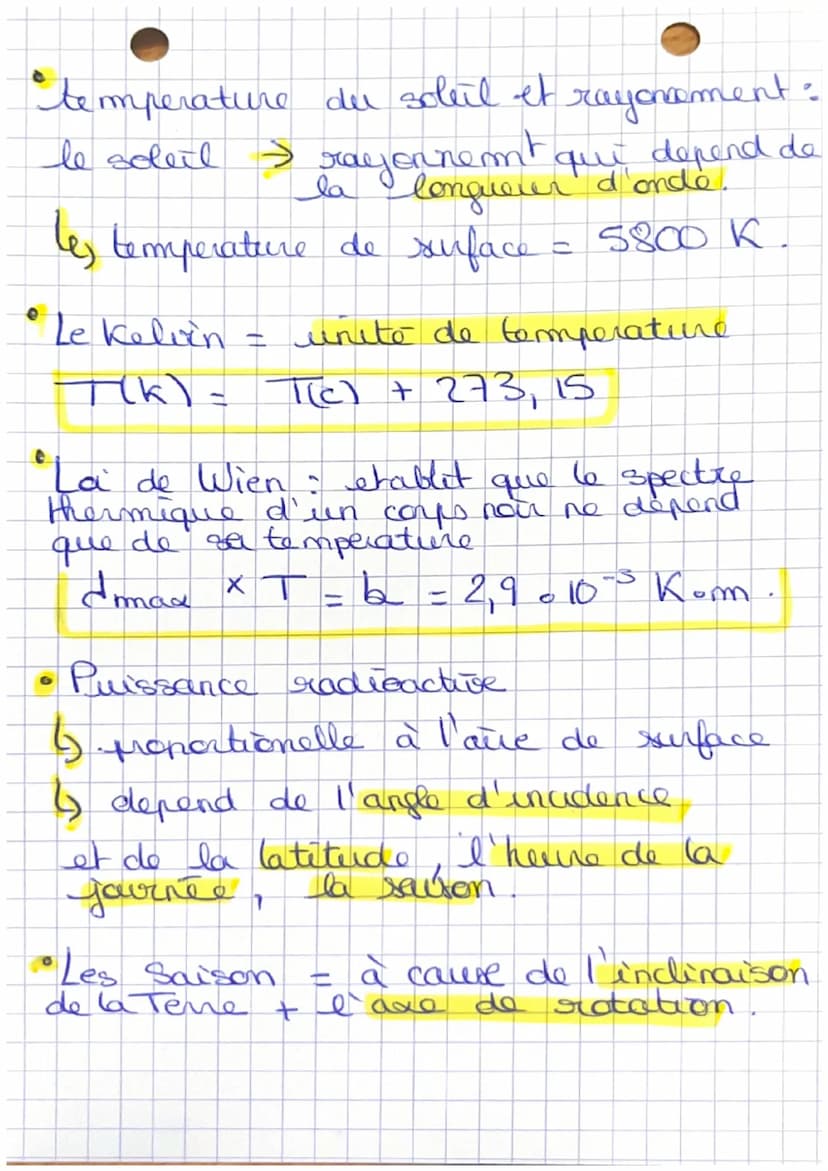 • temperature du soleil et rayonnement :
le soleil → rayonnemnt qui depend de
la longueur d'onde.
↳ temperature de surface = 5800 K.
• Le Kelvin = unité de temperature
T(K) = T(c) + 273,15
• Loi de Wien : etablit que le spectre
thermique d'un corps noir ne dépend
que de sa temperature
dmax × T = b = 2,9 • 10⁻³ K.m.
• Puissance radieactive
↳ proportionelle à l'aire de surface
↳ depend de l'angle d'incidence
et de la latitude, l'heure de la
journée, la saison.
• Les Saison = à cause de l'inclinaison
de la Terre + l'axe de rotation.